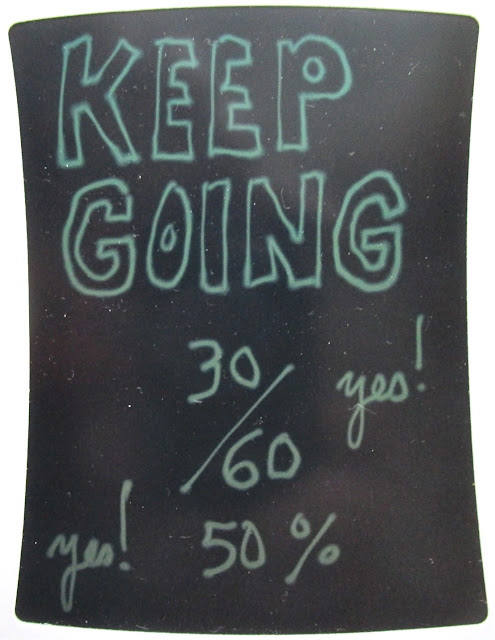 KEEP
GOING
30/60
yes!
yes!
50%